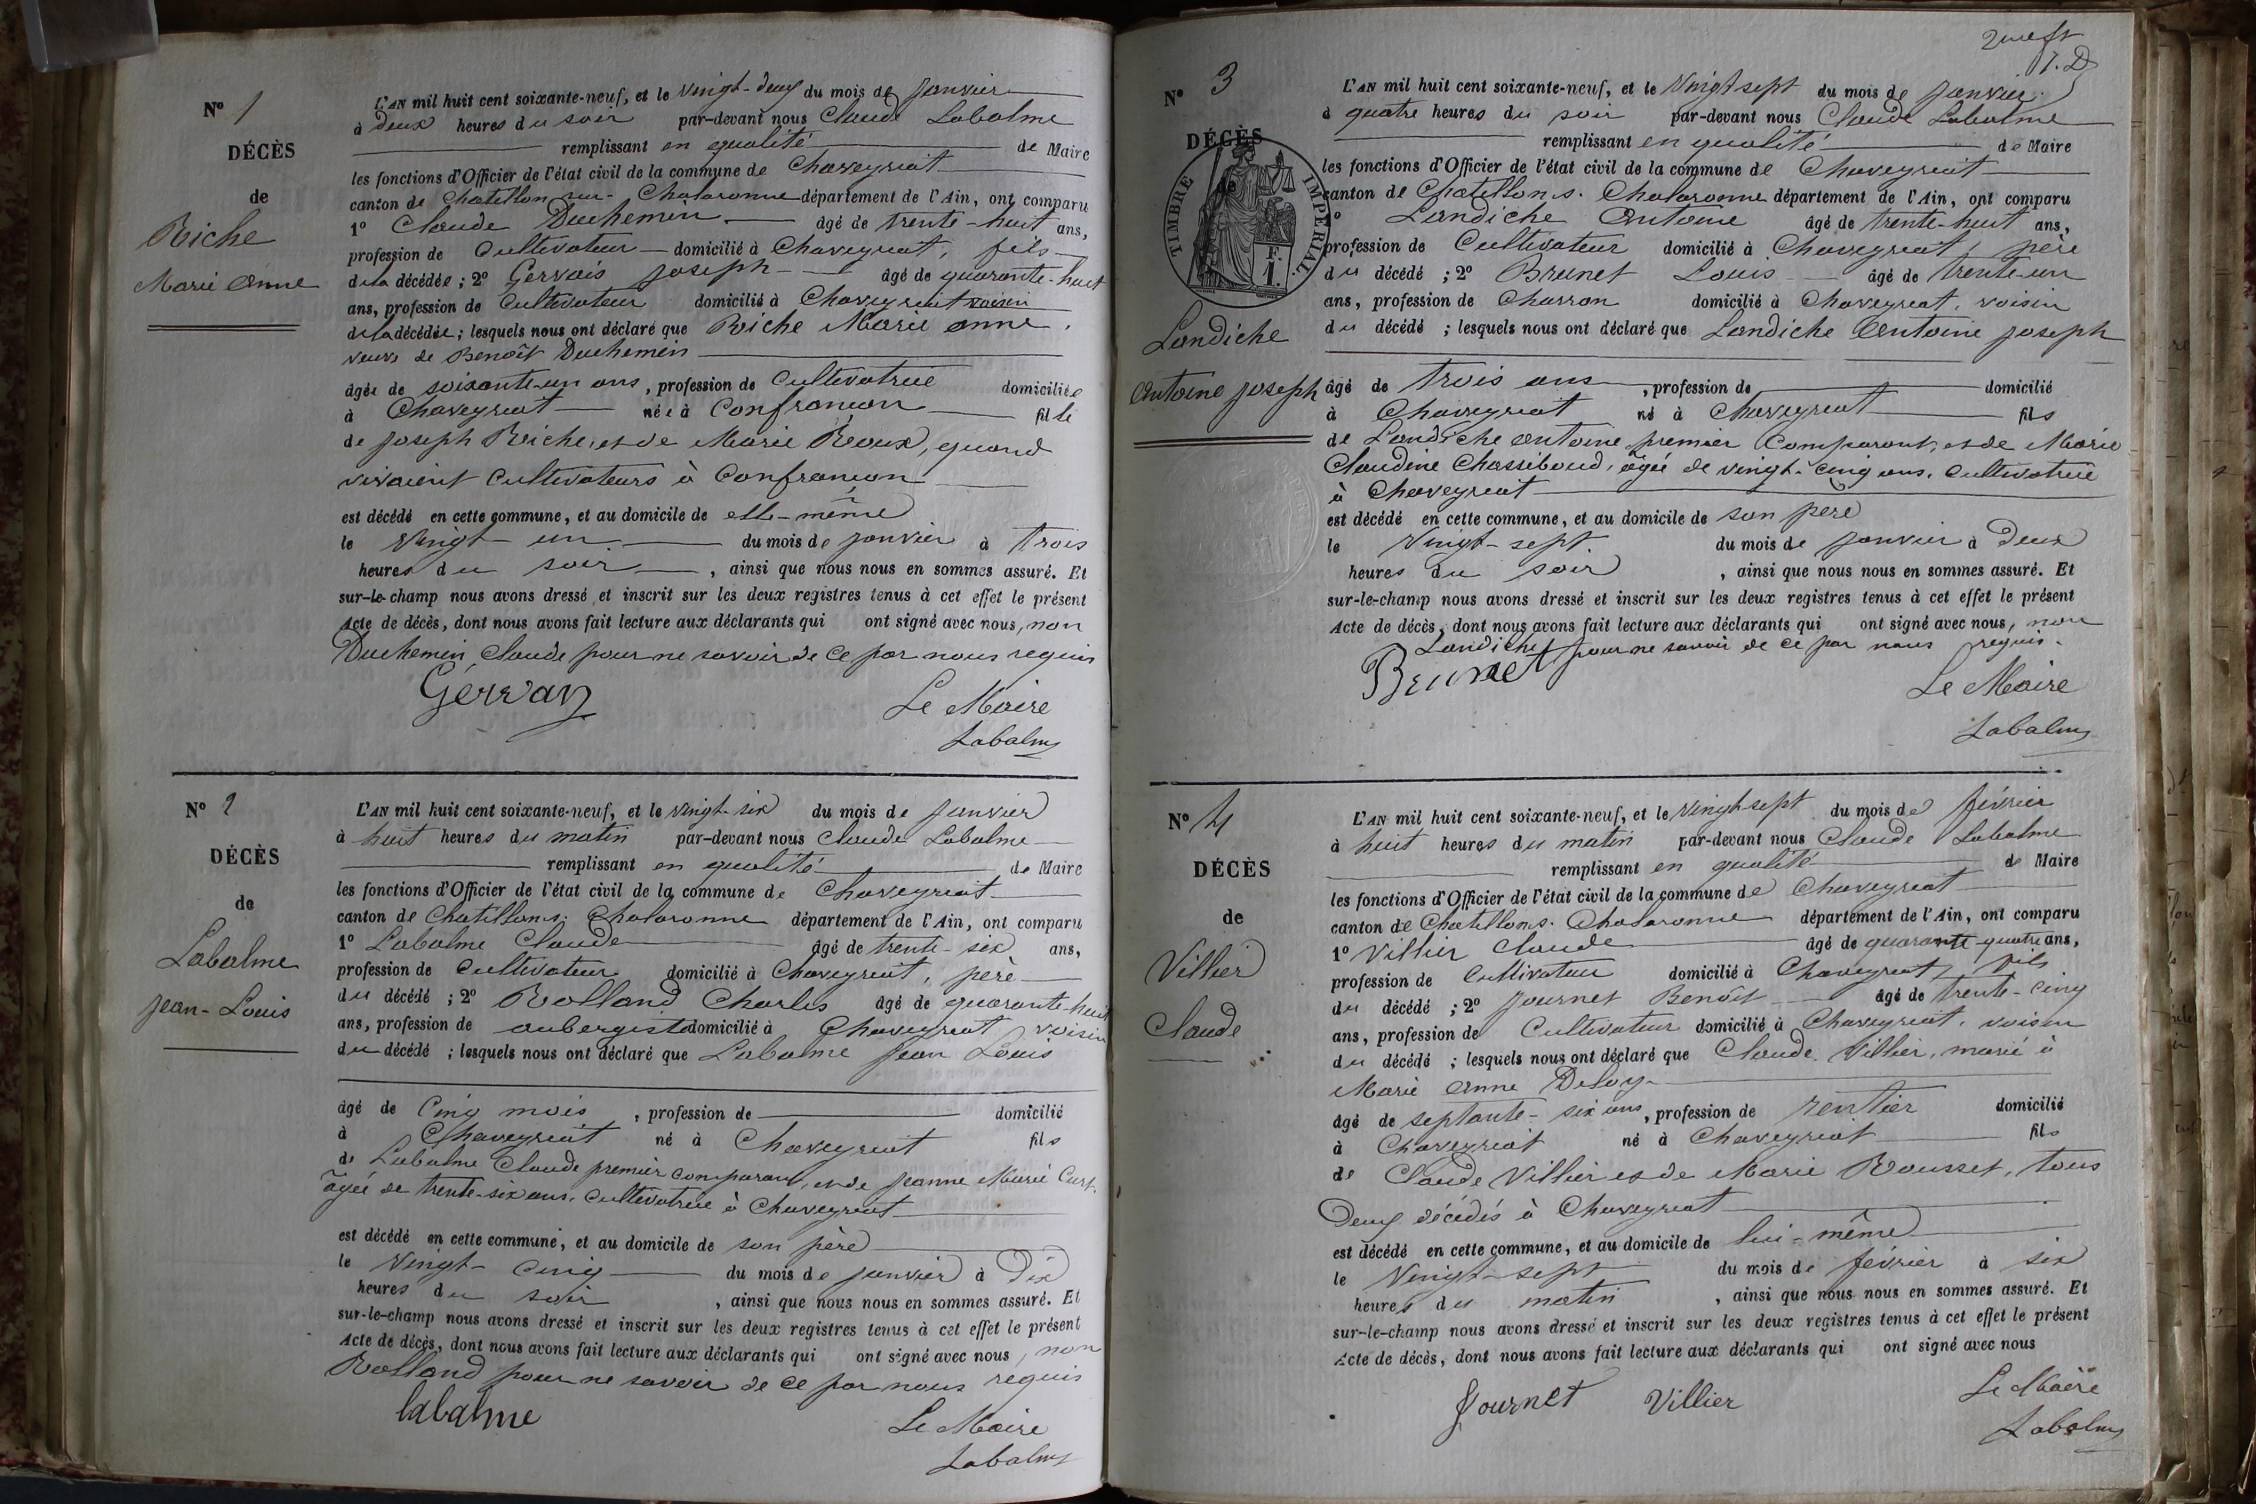 Nº 1
DÉCÈS
de
Riche
Marie Anne
L'AN mil huit cent soixante-neuf, et le vingt-deux du mois de Janvier
à deux heures du soir par-devant nous Claude Labalme
remplissant en qualité de Maire
les fonctions d'Officier de l'état civil de la commune de Chaveyriat
canton de Chatillon sur Chalaronne département de l'Ain, ont comparu
1º Claude Duchemin âgé de trente-huit ans,
profession de Cultivateur domicilié à Chaveyriat, fils
de la décédée ; 2º Gervais Joseph âgé de quarante-huit
ans, profession de Cultivateur domicilié à Chaveyriat voisin
de la décédée ; lesquels nous ont déclaré que Riche Marie Anne,
veuve de Benoît Duchemin
âgée de soixante-un ans, profession de Cultivatrice domiciliée
à Chaveyriat née à Confrançon fille
de Joseph Riche, et de Marie Reoux, quand
vivaient Cultivateurs à Confrançon
est décédé en cette commune, et au domicile de elle-même
le vingt-un du mois de Janvier à trois
heures du soir, ainsi que nous nous en sommes assuré. Et
sur-le-champ nous avons dressé et inscrit sur les deux registres tenus à cet effet le présent
Acte de décès, dont nous avons fait lecture aux déclarants qui ont signé avec nous, non
Duchemin Claude pour ne savoir de ce par nous requis
Gervais
Le Maire
Labalme
Nº 2
DÉCÈS
de
Labalme
Jean-Louis
L'AN mil huit cent soixante-neuf, et le vingt-six du mois de Janvier
à huit heures du matin par-devant nous Claude Labalme
remplissant en qualité de Maire
les fonctions d'Officier de l'état civil de la commune de Chaveyriat
canton de Chatillon s. Chalaronne département de l'Ain, ont comparu
1º Labalme Claude âgé de trente-six ans,
profession de Cultivateur domicilié à Chaveyriat, père
du décédé ; 2º Rolland Charles âgé de quarante-huit
ans, profession de aubergiste domicilié à Chaveyriat voisin
du décédé ; lesquels nous ont déclaré que Labalme Jean Louis
âgé de Cinq mois, profession de domicilié
à Chaveyriat né à Chaveyriat fils
de Labalme Claude premier comparant, et de Jeanne Marie Curt,
âgée de trente-six ans, Cultivatrice à Chaveyriat
est décédé en cette commune, et au domicile de son père
le vingt-cinq du mois de Janvier à Dix
heures du soir, ainsi que nous nous en sommes assuré. Et
sur-le-champ nous avons dressé et inscrit sur les deux registres tenus à cet effet le présent
Acte de décès, dont nous avons fait lecture aux déclarants qui ont signé avec nous, non
Rolland pour ne savoir de ce par nous requis
labalme
Le Maire
Labalme
Nº 3
DÉCÈS
de
TIMBRE IMPÉRIAL
F.
1.
Landiche
Antoine Joseph
L'AN mil huit cent soixante-neuf, et le vingt-sept du mois de Janvier
à quatre heures du soir par-devant nous Claude Labalme
remplissant en qualité de Maire
les fonctions d'Officier de l'état civil de la commune de Chaveyriat
canton de Chatillon s. Chalaronne département de l'Ain, ont comparu
1º Landiche Antoine âgé de trente-huit ans,
profession de Cultivateur domicilié à Chaveyriat, père
du décédé ; 2º Brunet Louis âgé de trente-un
ans, profession de Charron domicilié à Chaveyriat, voisin
du décédé ; lesquels nous ont déclaré que Landiche Antoine Joseph
âgé de trois ans, profession de domicilié
à Chaveyriat né à Chaveyriat fils
de Landiche Antoine premier Comparant, et de Marie
Claudine Chassiboud, âgée de vingt-cinq ans, Cultivatrice
à Chaveyriat
est décédé en cette commune, et au domicile de son père
le vingt-sept du mois de Janvier à Deux
heures du soir, ainsi que nous nous en sommes assuré. Et
sur-le-champ nous avons dressé et inscrit sur les deux registres tenus à cet effet le présent
Acte de décès, dont nous avons fait lecture aux déclarants qui ont signé avec nous, non
Landiche pour ne savoir de ce par nous requis.
Brunet
Le Maire
Labalme
Nº 4
DÉCÈS
de
Villier
Claude
L'AN mil huit cent soixante-neuf, et le vingt-sept du mois de février
à huit heures du matin par-devant nous Claude Labalme
remplissant en qualité de Maire
les fonctions d'Officier de l'état civil de la commune de Chaveyriat
canton de Chatillon s. Chalaronne département de l'Ain, ont comparu
1º Villier Claude âgé de quarante-quatre ans,
profession de Cultivateur domicilié à Chaveyriat, fils
du décédé ; 2º Journet Benoît âgé de trente-cinq
ans, profession de Cultivateur domicilié à Chaveyriat, voisin
du décédé ; lesquels nous ont déclaré que Claude Villier, marié à
Marie Anne Deloy
âgé de septante-six ans, profession de rentier domicilié
à Chaveyriat né à Chaveyriat fils
de Claude Villier et de Marie Rousset, tous
Deux décédés à Chaveyriat
est décédé en cette commune, et au domicile de lui-même
le vingt-sept du mois de février à six
heures du matin, ainsi que nous nous en sommes assuré. Et
sur-le-champ nous avons dressé et inscrit sur les deux registres tenus à cet effet le présent
Acte de décès, dont nous avons fait lecture aux déclarants qui ont signé avec nous
Journet Villier
Le Maire
Labalme